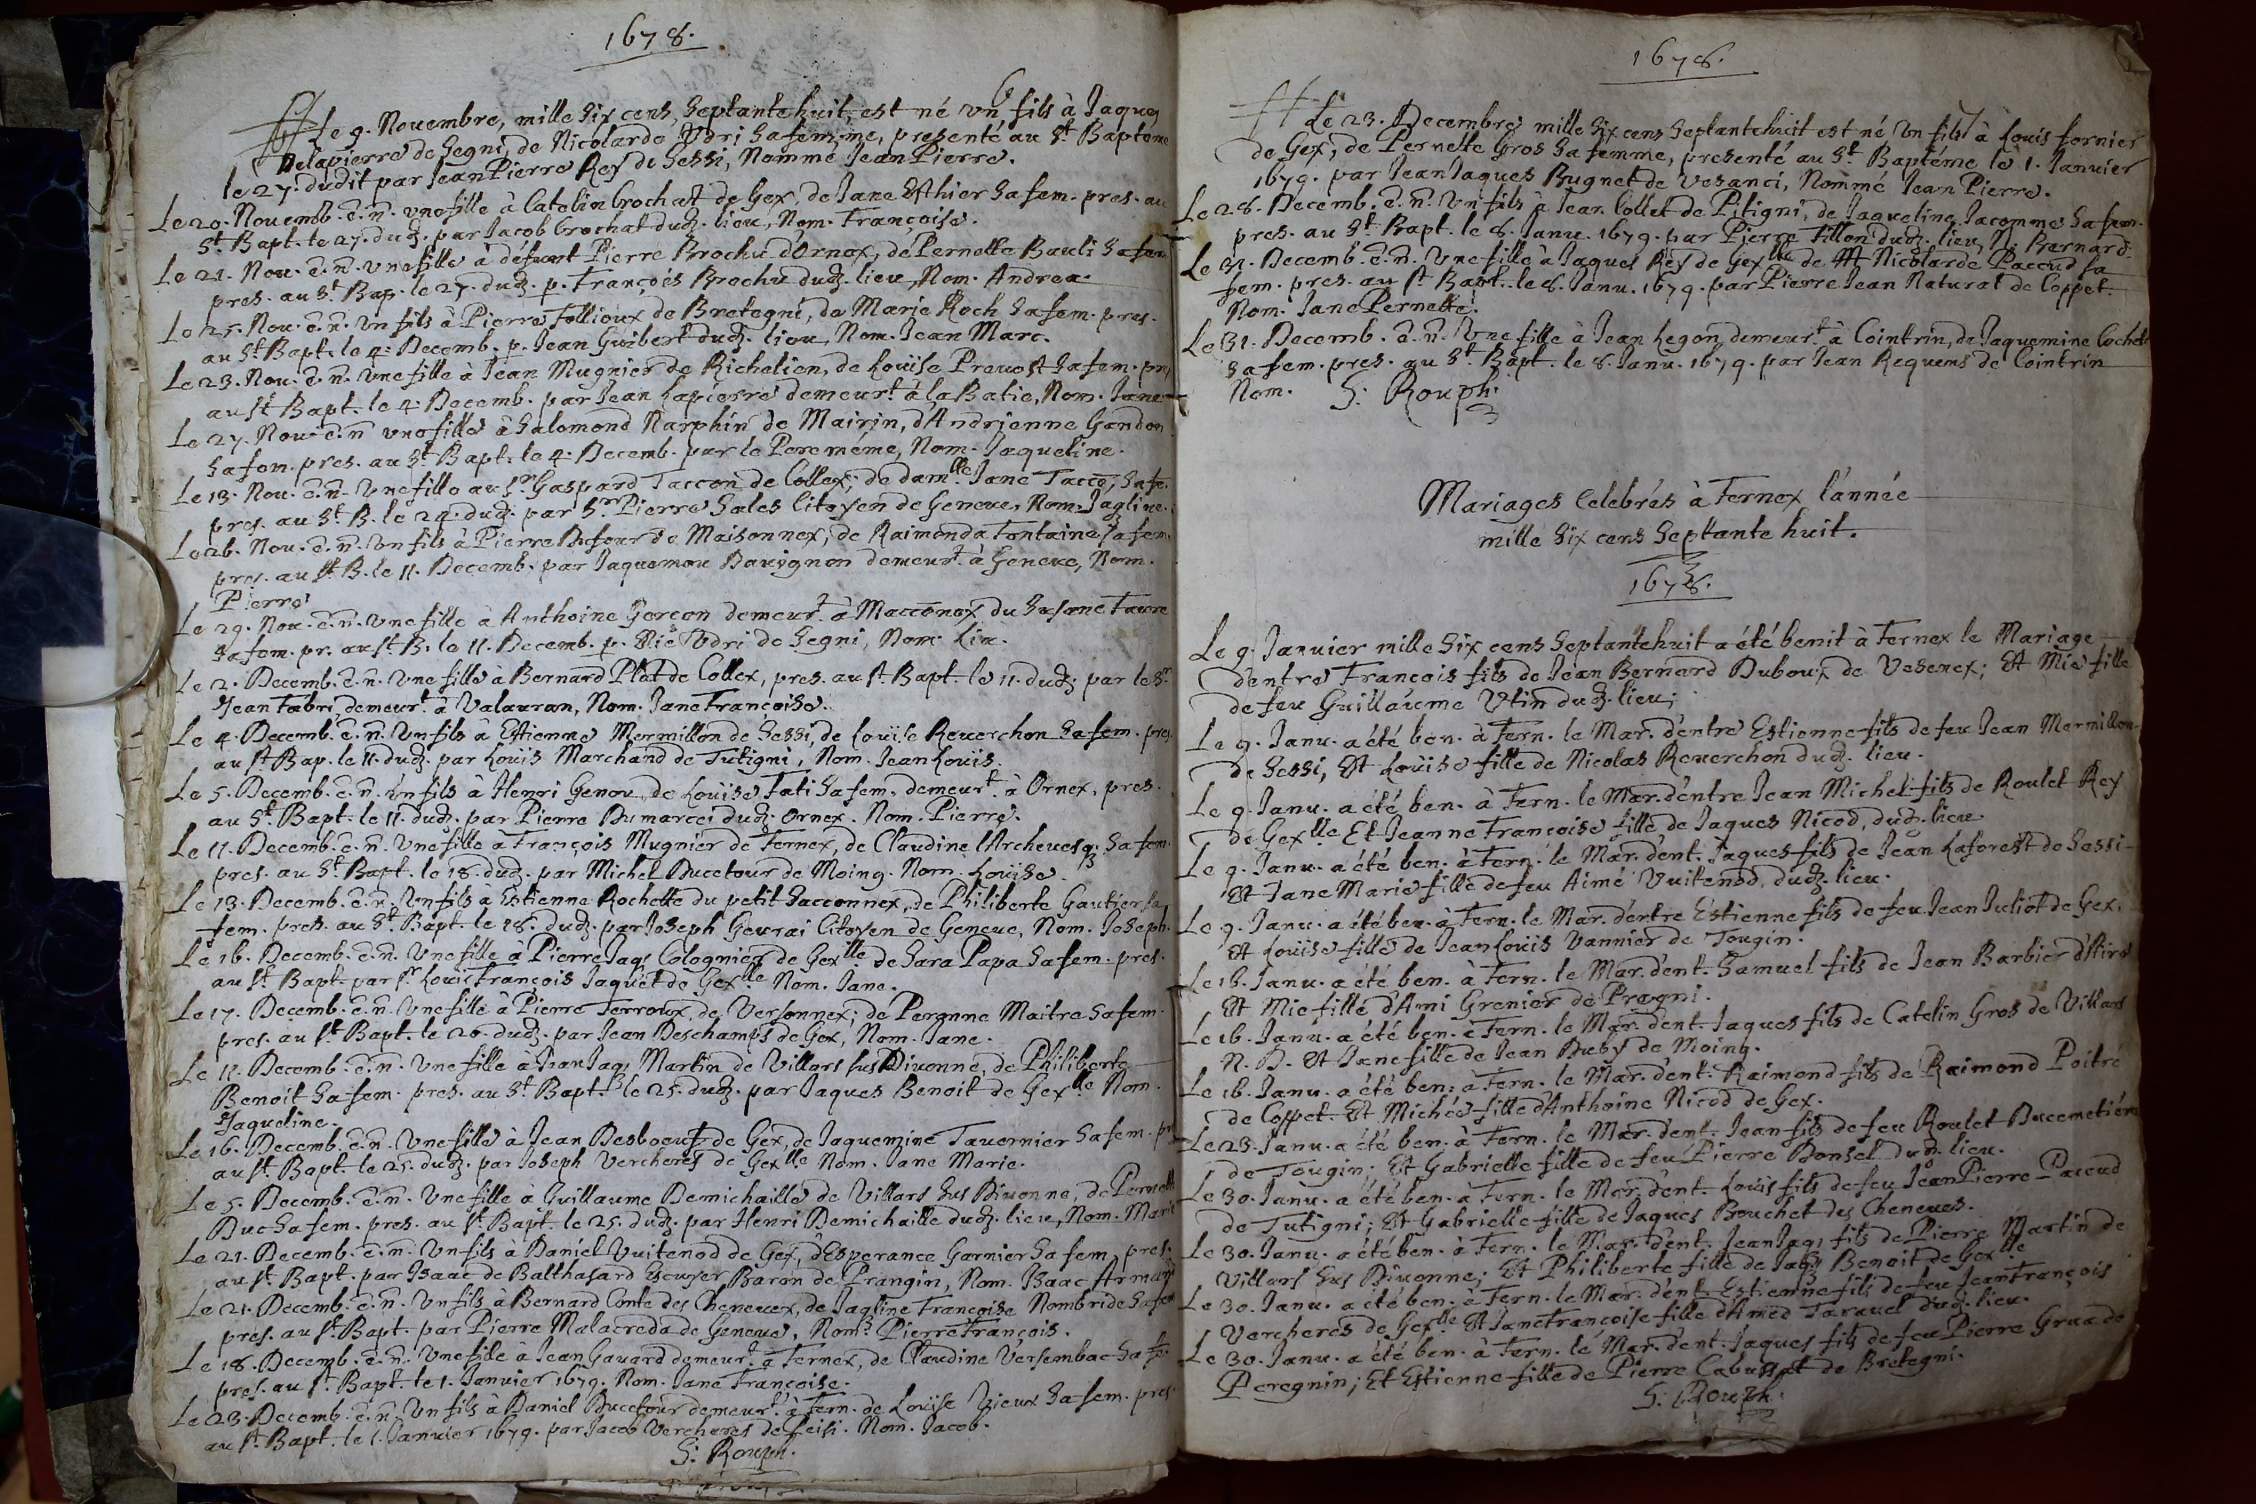 1678.
Le 9. Novembre, mille six cens, septante huit, est né un fils à Jaques
Delapierre de Segni, de Nicolarde Udri sa femme, presenté au St Bapteme
le 27. dudit par Jean Pierre Rey de Sessi, Nommé Jean Pierre.
Le 20. Novemb. e. n. une fille à Catelin Crochat de Gex, de Jane Esthier sa fem. pres. au
St Bapt. le 27. dud. par Jacob Crochat dud. lieu, Nom. Françoise.
Le 21. Nov. e. n. une fille à défunt Pierre Brochu d'Ornex, de Pernette Bauli sa fem
pres. au St Bap. le 27. dud. p. François Brochu dud. lieu, Nom. Andrea.
Le 25. Nov. e. n. un fils à Pierre Follioux de Bretegni, de Marie Roch sa fem. pres.
au St Bapt. le 4. Decemb. p. Jean Guibert dud. lieu, Nom. Jean Marc.
Le 23. Nov. e. n. une fille à Jean Mugnier de Richelien, de Louïse Prevost sa fem. pres
au St Bapt. le 4. Decemb. par Jean Lapierre demeurt à la Batie, Nom. Jane
Le 27. Nov. e. n. une fille à Salomond Narphin de Mairin, d'Andrienne Gandon
sa fem. pres. au St Bapt. le 4. Decemb. par le Pere méme, Nom. Jaqueline.
Le 13. Nov. e. n. une fille au Sr Gaspard Taccon de Collex, de damlle Jane Tacco, sa fe.
pres. au St B. le 24. dud. par Sr Pierre Sales Citoyen de Geneve, Nom. Jaqline.
Le 26. Nov. e. n. un fils à Pierre Dufour de Maisonnex, de Raimonda Fontaine sa fem.
pres. au St B. le 11. Decemb. par Jaquemou Davignon demeurt à Geneve, Nom.
Pierre
Le 29. Nov. e. n. une fille à Anthoine Gorcon demeurt à Macconex, du Susane Favre
sa fem. pr. au St B. le 11. Decemb. p. Mie Udri de Segni, Nom. Lin.
Le 2. Decemb. e. n. une fille à Bernard Plat de Collex, pres. au St Bapt. le 11. dud. par le Sr
Jean Fabri, demeurt à Valavran, Nom. Jane Françoise.
Le 4. Decemb. e. n. un fils à Estienne Mermillon de Sessi, de Louïse Reverchon sa fem. pres.
au St Bap. le 11. dud. par Louïs Marchand de Tutigni, Nom. Jean Louïs.
Le 5. Decemb. e. n. un fils à Henri Genou, de Louïse Fati sa fem. demeurt à Ornex, pres.
au St. Bapt. le 11. dud. par Pierre Dumarcei dud. Ornex. Nom. Pierre.
Le 11. Decemb. e. n. une fille à François Mugnier de Fernex, de Claudine l'Archevesq. sa fem.
pres. au St Bapt. le 18. dud. par Michel Ducetour de Moing. Nom. Louïse.
Le 13. Decemb. e. n. un fils à Estienne Rochette du petit Sacconnex, de Philiberte Gautier sa
fem. pres. au St Bapt. le 18. dud. par Joseph Gevrai Citoyen de Geneve, Nom. Joseph.
Le 16. Decemb. e. n. une fille à Pierre Jaqs Colognier de Gexlle de Sara Papa sa fem. pres.
au St Bapt. par Sr Louïs François Jaquet de Gexlle Nom. Jane.
Le 17. Decemb. e. n. une fille à Pierre Terroux, de Versonnex; de Peronne Maitre sa fem.
pres. au St Bapt. le 26. dud. par Jean Deschamps de Gex, Nom. Jane.
Le 12. Decemb. e. n. une fille à Jean Jaqs Martin de Villars sus Divonne, de Philiberte
Benoit sa fem. pres. au St Bapt. le 25. dud. par Jaques Benoit de Gexlle Nom.
Jaqueline.
Le 16. Decemb. e. n. une fille à Jean Desboeufs de Gex, de Jaquemine Tavernier sa fem. pr
au St Bapt. le 25. dud. par Joseph Vercheres de Gexlle Nom. Jane Marie.
Le 5. Decemb. e. n. une fille à Guillaume Demichaille de Villars sus Divonne, de Pernette
Duc sa fem. pres. au St Bapt. le 25. dud. par Henri Demichaille dud. lieu, Nom. Marie
Le 21. Decemb. e. n. un fils à Daniel Vuitenod de Gex, d'Esperance Garnier sa fem, pres.
au St Bapt. par Isaac de Balthasard Escuyer Baron de Prangin, Nom. Isaac Armand
Le 21. Decemb. e. n. un fils à Bernard Conte des Chenevex, de Jaqline Françoise Nombride sa fem
pres. au St Bapt. par Pierre Malacreda de Geneve, Nom. Pierre François.
Le 18. Decemb. e. n. une fille à Jean Gavard demeurt à Fernex, de Claudine Versembac sa fe.
pres. au St Bapt. le 1. Janvier 1679. Nom. Jane Françoise.
Le 23. Decemb. e. n. un fils à Daniel Ducetour demeurt à Fern. de Louïse Vieux sa fem. pres.
au St Bapt. le 1. Janvier 1679. par Jacob Vercheres de Feisi. Nom. Jacob.
S: Rouph.
1678.
Le 23. Decembre mille six cens septante huit est né un fils à Louis fornier
de Gex, de Pernete Gros sa femme, presenté au St Baptéme le 1. Janvier
1679. par Jean Jaques Bugnet de Vesanci, Nommé Jean Pierre.
Le 28. Decemb. e. n. un fils à Jean Collet de Pitigni, de Jaqueline Jacomme sa fem.
pres. au St Bapt. le 8. Janv. 1679. par Pierre Fillon dud. lieu, N. Bernard.
Le 31. Decemb. e. n. une fille à Jaques Rey de Gexlle de Nicolarde Paccud sa
fem. pres. au St Bapt. le 8. Janv. 1679. par Pierre Jean Naturat de Coppet.
Nom. Jane Pernette.
Le 31. Decemb. e. n. une fille à Jean Legon demeurt à Cointrin, de Jaquemine Cochet
sa fem. pres. au St Bapt. le 8. Janv. 1679. par Jean Requems de Cointrin
Nom. S: Rouph.
Mariages Celebrés à Fernex l'année
mille six cens septante huit.
1678.
Le 9. Janvier mille six cens septante huit a été benit à Fernex le Mariage
d'entre François fils de Jean Bernard Duboux de Vesenex; Et Mie fille
de feu Guillaume Utin dud. lieu;
Le 9. Janv. a été ben. à Fern. le Mar. d'entre Estienne fils de feu Jean Mermillon
de Sessi, Et Louïse fille de Nicolas Reverchon dud. lieu.
Le 9. Janv. a été ben. à Fern. le Mar. d'entre Jean Michel fils de Roulet Rey
de Gexlle Et Jeanne Françoise fille de Jaques Nicod, dud. lieu
Le 9. Janv. a été ben. à Fern. le Mar. d'ent. Jaques fils de Jean Laforest de Sessi
Et Jane Marie fille de feu Aimé Vuitenod, dud. lieu.
Le 9. Janv. a été ben. à Fern. le Mar. d'entre Estienne fils de feu Jean Juliot de Gex.
Et Louïse fille de Jean Louïs Vannier de Tougin.
Le 16. Janv. a été ben. à Fern. le Mar. d'ent. Samuel fils de Jean Barbier d'Aire
Et Mie fille d'Ami Grenier de Pregni.
Le 16. Janv. a été ben. à Fern. le Mar. d'ent. Jaques fils de Catelin Gros de Villars
N. D. Et Jane fille de Jean Duby de Moing.
Le 16. Janv. a été ben. à Fern. le Mar. d'ent. Raimond fils de Raimond Poitré
de Coppet. Et Michée fille d'Anthoine Nicod de Gex.
Le 23. Janv. a été ben. à Fern. le Mar. d'ent. Jean fils de feu Roulet Ducemetiére
de Tougin; Et Gabrielle fille de feu Pierre Donsel dud. lieu.
Le 30. Janv. a été ben. à Fern. le Mar. d'ent. Louïs fils de feu Jean Pierre Paccud
de Tutigni; Et Gabrielle fille de Jaques Bouchet des Cheneves.
Le 30. Janv. a été ben. à Fern. le Mar. d'ent. Jean Jaqs fils de Pierre Martin de
Villars sus Divonne; Et Philiberte fille de Jaqs Benoit de Gexlle
Le 30. Janv. a été ben. à Fern. le Mar. d'ent. Estienne fils de feu Jean François
Vercheres de Gexlle Et Jane Françoise fille d'Amed Taravel dud. lieu.
Le 30. Janv. a été ben. à Fern. le Mar. d'ent. Jaques fils de feu Pierre Graa de
Peregnin; Et Estienne fille de Pierre Cabusat de Bretegni.
S: Rouph.